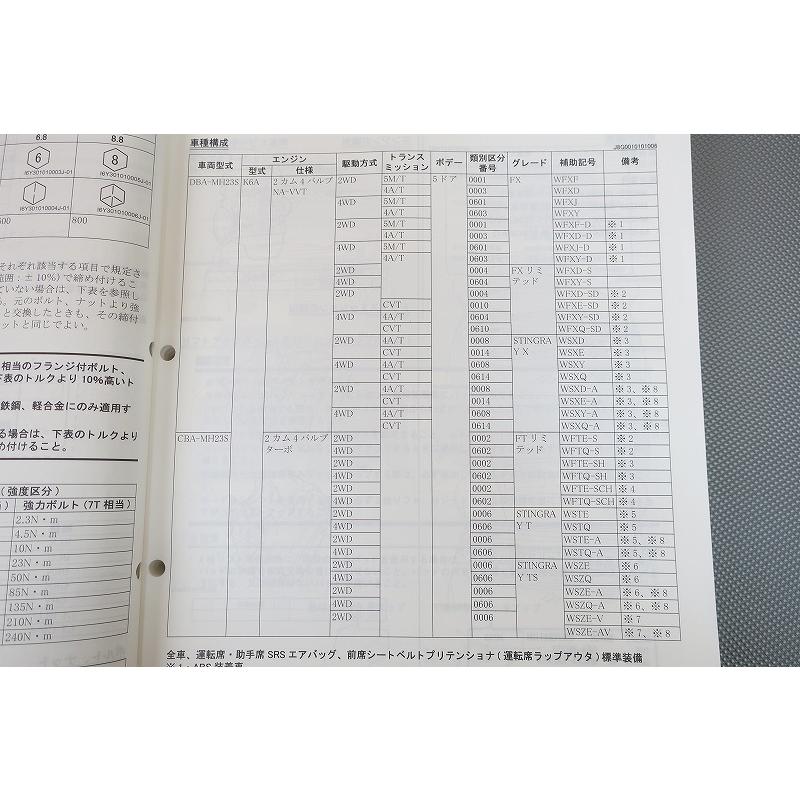 6.8
8.8
6
8
I6Y301010003J-01
I6Y301010005J-01
I6Y301010004J-01
I6Y301010006J-01
800
それぞれ該当する項目で規定さ
範囲：±10%)で締め付けるこ
ていない場合は、下表を参照し
る。元のボルト、ナットより強
と交換したときも、その締付
ットと同じでよい。
相当のフランジ付ボルト、
下表のトルクより 10%高いト
鉄鋼、軽合金にのみ適用す
る場合は、下表のトルクより
め付けること。
(強度区分)
強力ボルト (7T 相当)
2.3N・m
4.5N・m
10N・m
23N・m
50N・m
85N・m
135N・m
210N・m
240N・m
車種構成
JSG0010101006
車両型式 エンジン 駆動方式 トランスミッション ボデー 類別区分番号 グレード 補助記号 備考
型式 仕様
DBA-MH23S K6A 2カム4バルブ 2WD 5M/T 5ドア 0001 FX WFXF
NA-VVT 4A/T 0003 WFXD
4WD 5M/T 0601 WFXJ
4A/T 0603 WFXY
2WD 5M/T 0001 WFXF-D ※1
4A/T 0003 WFXD-D ※1
4WD 5M/T 0601 WFXJ-D ※1
4A/T 0603 WFXY-D ※1
2WD 0004 FXリミ WFXD-S
4WD 0604 テッド WFXY-S
2WD 0004 WFXD-SD ※2
CVT 0010 WFXE-SD ※2
4WD 4A/T 0604 WFXY-SD ※2
CVT 0610 WFXQ-SD ※2
2WD 4A/T 0008 STINGRA WSXD ※3
CVT 0014 Y X WSXE ※3
4WD 4A/T 0608 WSXY ※3
CVT 0614 WSXQ ※3
2WD 4A/T 0008 WSXD-A ※3、※8
CVT 0014 WSXE-A ※3、※8
4WD 4A/T 0608 WSXY-A ※3、※8
CVT 0614 WSXQ-A ※3、※8
CBA-MH23S 2カム4バルブ 2WD 0002 FTリミ WFTE-S ※2
ターボ 4WD 0602 テッド WFTQ-S ※2
2WD 0002 WFTE-SH ※3
4WD 0602 WFTQ-SH ※3
2WD 0002 WFTE-SCH ※4
4WD 0602 WFTQ-SCH ※4
2WD 0006 STINGRA WSTE ※5
4WD 0606 Y T WSTQ ※5
2WD 0006 WSTE-A ※5、※8
4WD 0606 WSTQ-A ※5、※8
2WD 0006 STINGRA WSZE ※6
4WD 0606 Y TS WSZQ ※6
2WD 0006 WSZE-A ※6、※8
4WD 0606 WSZQ-A ※6、※8
2WD 0006 WSZE-V ※7
WSZE-AV ※7、※8
全車、運転席・助手席 SRS エアバッグ、前席シートベルトプリテンショナ (運転席ラップアウタ) 標準装備
※1：ABS 装着車